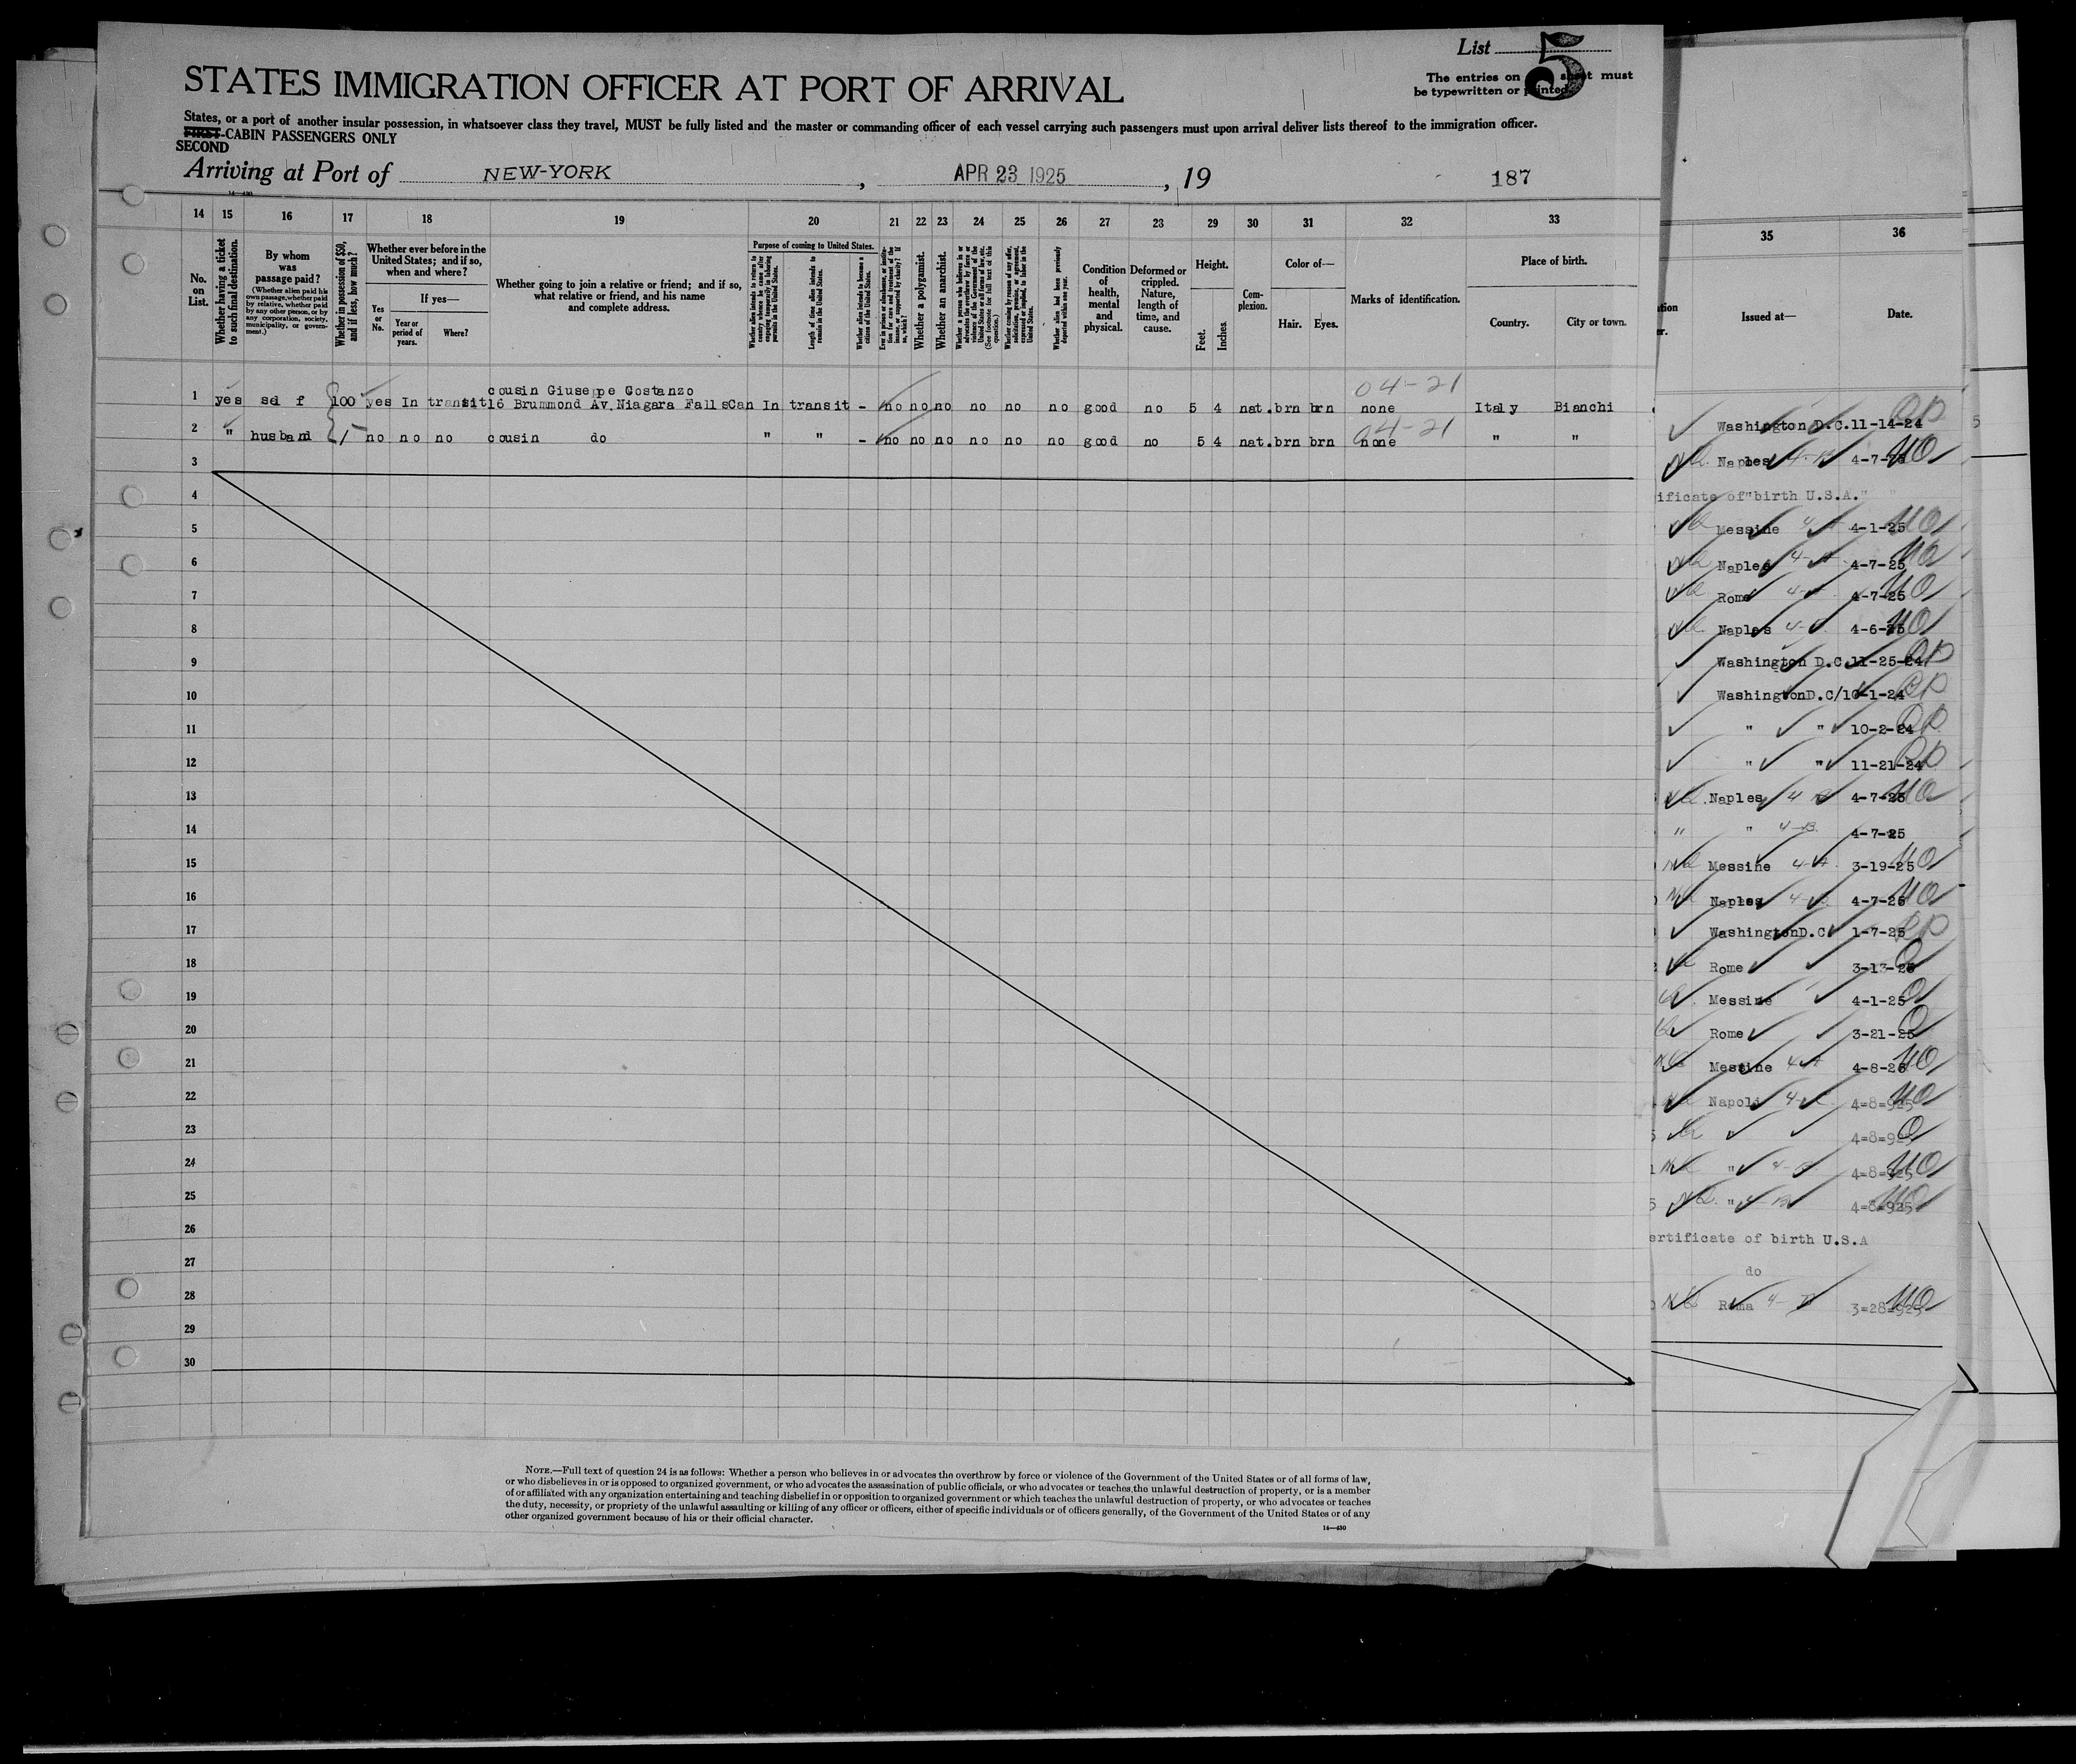 List 5
STATES IMMIGRATION OFFICER AT PORT OF ARRIVAL
The entries on sheet must
be typewritten or printed.
States, or a port of another insular possession, in whatsoever class they travel, MUST be fully listed and the master or commanding officer of each vessel carrying such passengers must upon arrival deliver lists thereof to the immigration officer.
FIRST-CABIN PASSENGERS ONLY
SECOND
Arriving at Port of NEW-YORK, APR 23 1925, 19 187
14 15 16 17 18 19 20 21 22 23 24 25 26 27 28 29 30 31 32 33
No. on List.
Whether having a ticket to such final destination.
By whom was passage paid?
(Whether alien paid his own passage, whether paid by relative, whether paid by any other person, or by any corporation, society, municipality, or government.)
Whether in possession of $50, and if less, how much?
Whether ever before in the United States; and if so, when and where?
Yes or No.
If yes—
Year or period of years.
Where?
Whether going to join a relative or friend; and if so, what relative or friend, and his name and complete address.
Purpose of coming to United States.
Whether alien intends to return to country whence he came after engaging temporarily in laboring pursuits in the United States.
Length of time alien intends to remain in the United States.
Whether alien intends to become a citizen of the United States.
Whether a polygamist.
Whether an anarchist.
Condition of health, mental and physical.
Deformed or crippled. Nature, length of time, and cause.
Height.
Feet.
Inches.
Complexion.
Color of—
Hair.
Eyes.
Marks of identification.
Place of birth.
Country.
City or town.
04-21
cousin Giuseppe Costanzo
1 yes sd f 100 yes In transit 16 Brummond Av. Niagara FallsCan In transit - no no no no no no good no 5 4 nat. brn brn none Italy Bianchi
04-21
2 " husband no no no cousin do " " - no no no no no no good no 5 4 nat. brn brn none " "
3
4
5
6
7
8
9
10
11
12
13
14
15
16
17
18
19
20
21
22
23
24
25
26
27
28
29
30
NOTE.—Full text of question 24 is as follows: Whether a person who believes in or advocates the overthrow by force or violence of the Government of the United States or of all forms of law,
or who disbelieves in or is opposed to organized government, or who advocates the assassination of public officials, or who advocates or teaches the unlawful destruction of property, or is a member
of or affiliated with any organization entertaining and teaching disbelief in or opposition to organized government or which teaches the unlawful destruction of property, or who advocates or teaches
the duty, necessity, or propriety of the unlawful assaulting or killing of any officer or officers, either of specific individuals or of officers generally, of the Government of the United States or of any
other organized government because of his or their official character.
14—430
35 36
Issued at— Date.
Washington D.C. 11-14-24
Naples 4-7-25
ificate of "birth U.S.A." "
Messine 4-1-25
Naples 4-7-25
Rome 4-7-25
Naples 4-6-25
Washington D.C. 11-25-24
WashingtonD.C/10-1-24
" " 10-2-24
" " 11-21-24
Naples 4-7-25
" " 4-7-25
Messine 3-19-25
Naples 4-7-25
WashingtonD.C 1-7-25
Rome 3-13-25
Messine 4-1-25
Rome 3-21-25
Messine 4-8-25
Napoli 4=8=925
4=8=925
" 4=8=925
" 4=8=925
ertificate of birth U.S.A
do
Roma 3=28=925